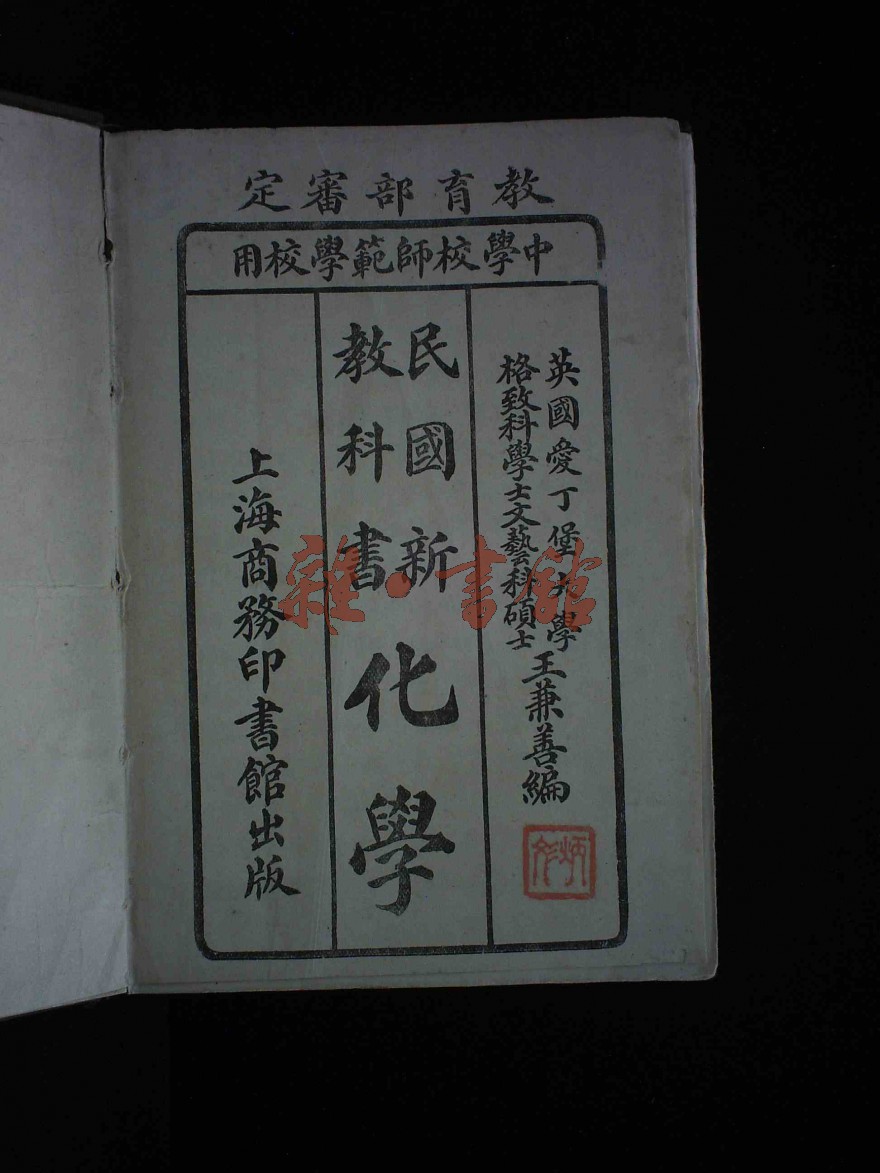 教育部審定
中學校師範學校用
英國愛丁堡大學
格致科學士文藝科碩士
王兼善編
民國新
教科書
化學
上海商務印書館出版
雜·書館